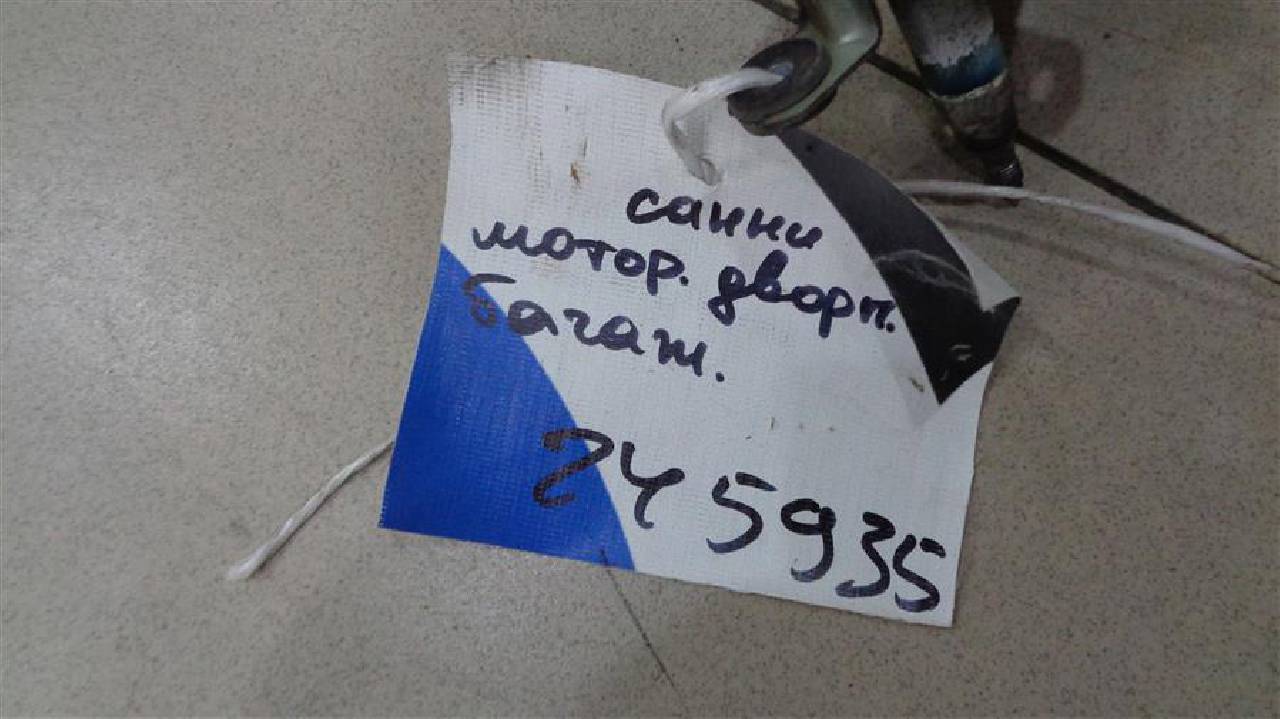 санни
мотор. дворн.
багаж.
245935